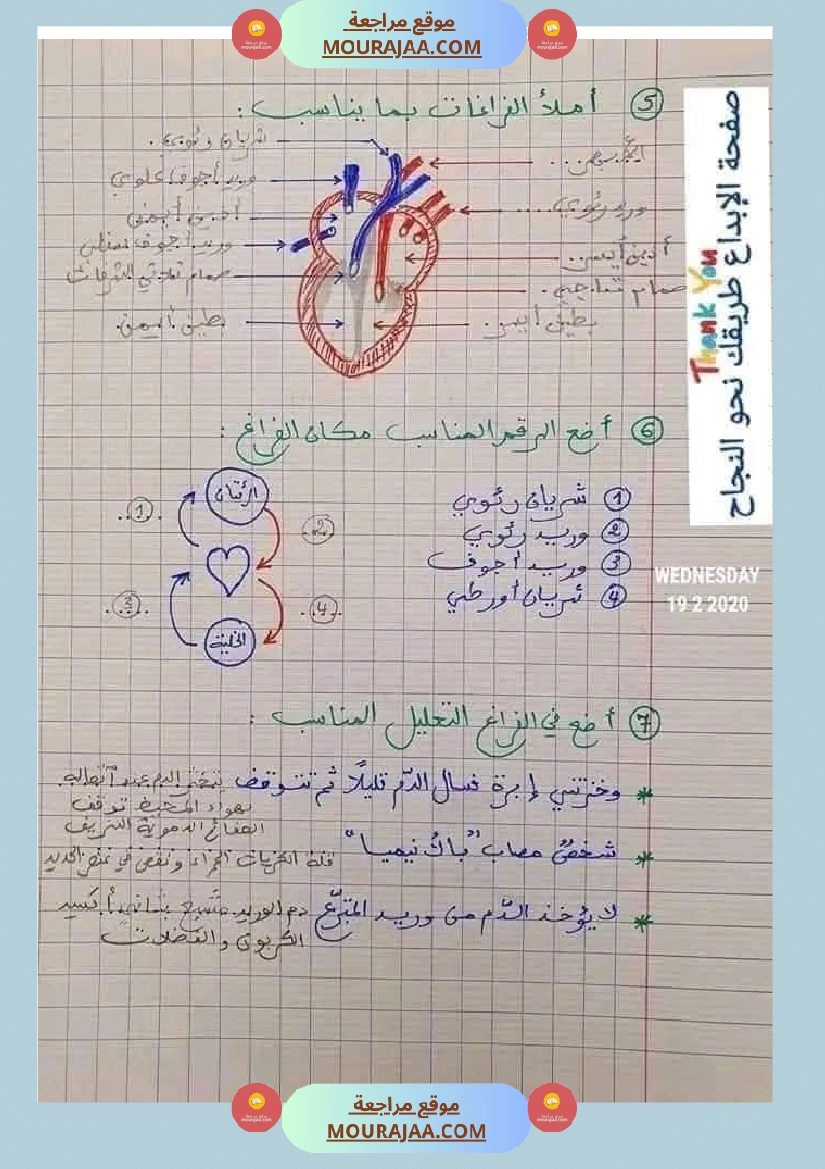 موقع مراجعة
MOURAJAA.COM
5 أملأ الفراغات بما يناسب :
شريان رئوي.
وريد أجوف علوي
وريد رئوي....
أذين أيمن
وريد أجوف سفلي
أذين أيسر..
صمام تاجي.
بطين أيمن.
بطين أيسر.
صفحة الإبداع طريقك نحو النجاح
Thank You
6 أضع الرقم المناسب مكان الفراغ :
الرئتان
الخلية
..1..
..2..
..3..
..4..
1 شريان رئوي
2 وريد رئوي
3 وريد أجوف
4 شريان أورطي
WEDNESDAY
19 2 2020
7 أضع في الفراغ التعليل المناسب :
* وخزتني إبرة فسال الدّم قليلًا ثم توقف يتخثر الدم عند اتصاله
بهواء المحيط توقف
الصفائح الدموية النزيف
* شخصٌ مصاب "باكْ نيميا" قلة الكريات الحمراء ونقص في عنصر الحديد
* لا يؤخذ الدّم من وريد المتبرّع دم الوريد مشبع بثاني أكسيد
الكربون والفضلات
موقع مراجعة
MOURAJAA.COM